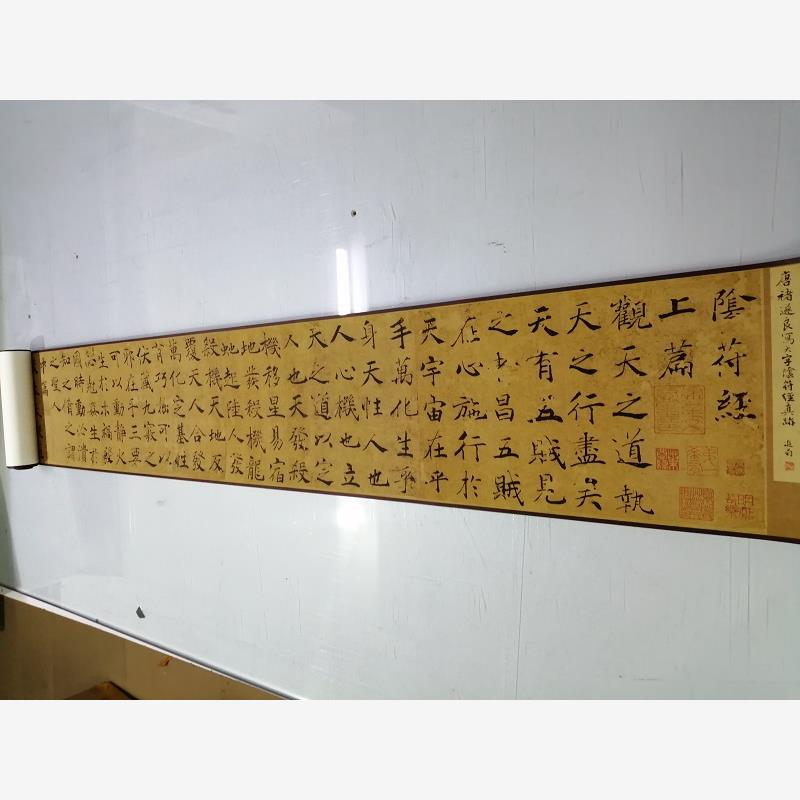 唐褚遂良寫大字陰符經真跡
陰符經
上篇
觀天之道執
天之行盡矣
天有五賊見
之者昌五賊
在心施行於
天宇宙在乎
手萬化生乎
身天性人也
人心機也立
天之道以定
人也天發殺
機移星易宿
地發殺機龍
虵起陸人發
殺機天地反
覆天人合發
萬化定基性
有巧拙可以
伏藏九竅之
邪在乎三要
可以動靜火
生於木禍發
必剋姦生於
國時動必潰
知之修之謂
之聖人
中篇